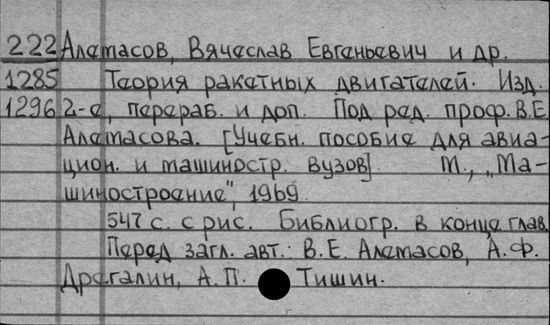 222 Алемасов, Вячеслав Евгеньевич и др.
1285 Теория ракетных двигателей. Изд.
1296 2-е, перераб. и доп. Под ред. проф. В.Е.
Алемасова. [Учебн. пособие для авиа-
цион. и машиностр. вузов]. М., „Ма-
шиностроение", 1969
547 с. с рис. Библиогр. в конце глав.
Перед загл. авт.: В.Е. Алемасов, А.Ф.
Дрегалин, А.П. Тишин.